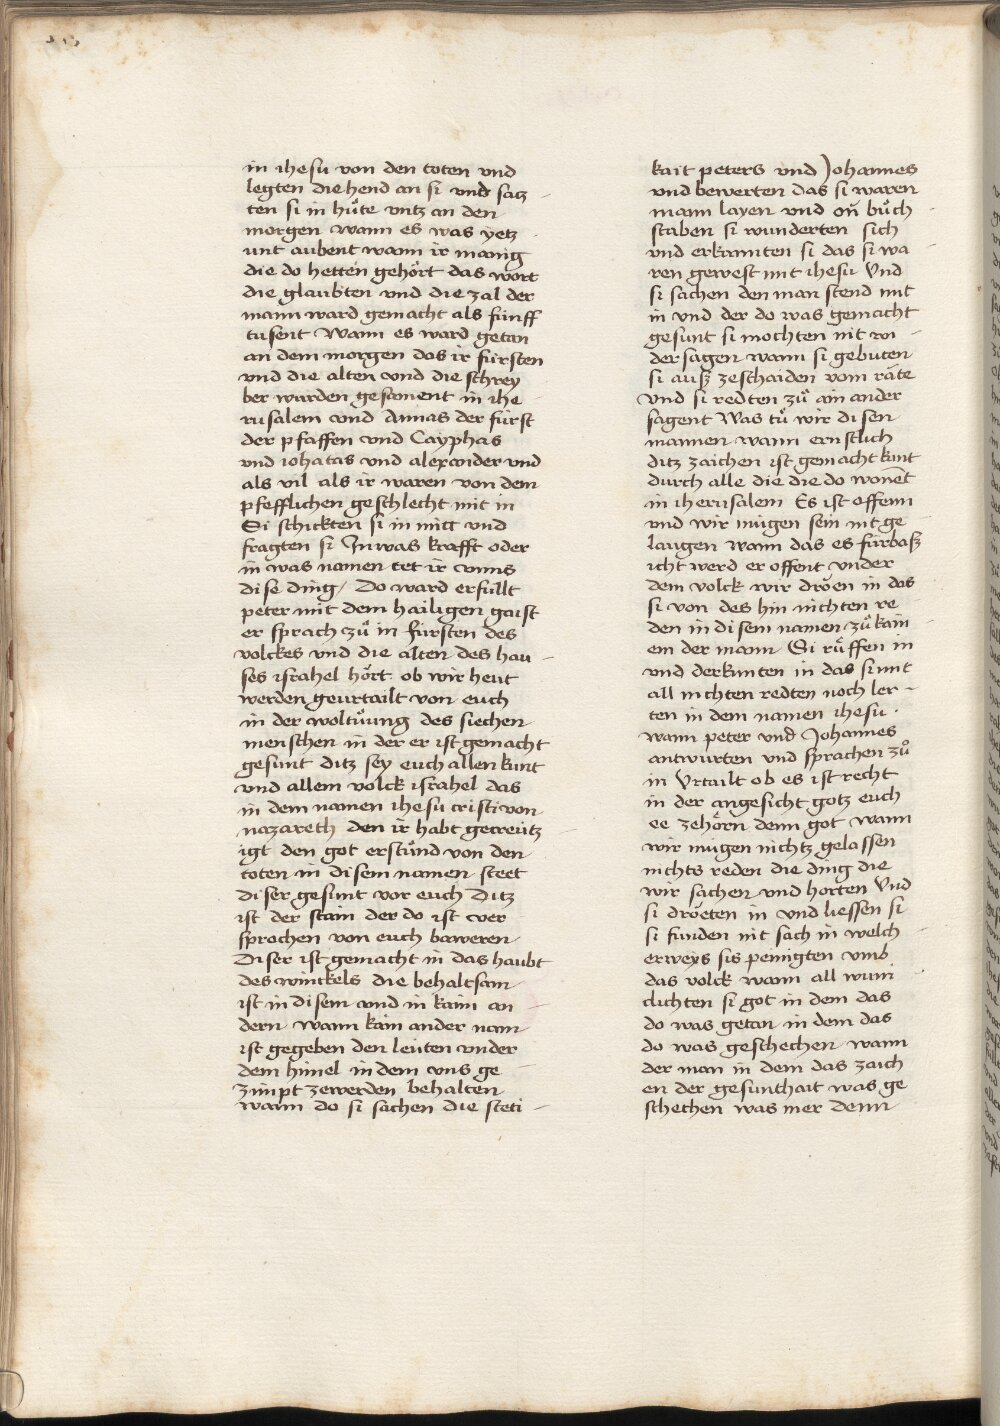 in ihesu von den toten vnd
legten die hend an si vnd satz
ten si in hůte vntz an den
morgen wann es was yetz
unt aubent wann ir manig
die do hetten gehört das wort
die glaubten vnd die zal der
mann ward gemacht als fünff
tusent Wann es ward getan
an dem morgen das ir fürsten
vnd die alten vnd die schrey
ber wurden gesament in ihe
rusalem vnd Annas der fürst
der pfaffen vnd Cayphas
vnd iohatas vnd alexander vnd
als vil als ir waren von dem
pfefflichen geschlecht mit in
Si schickten si in mitt vnd
fragten si In was krafft oder
in was namen tet ir vnns
dise ding / Do ward erfüllt
peter mit dem hailigen gaist
er sprach zů in fürsten des
volckes vnd die alten des hau
ses israhel hört ob wir heut
werden geurtailt von euch
in der woltůung des siechen
menschen in der er ist gemacht
gesunt ditz sey euch allen kunt
vnd allem volck israhel das
in dem namen ihesu cristi von
nazareth den ir habt gecreütz
igt den got erstůnd von den
toten in disem namen steet
diser gesunt vor euch Ditz
ist der stain der do ist ver
sprochen von euch baweren
Diser ist gemacht in das haubt
des winckels die behaltsam
ist in disem vnd in kaim an
dern wann kain ander nam
ist gegeben den leuten vnder
dem himel in dem vns ge
zimpt zewerden behalten
wann do si sachen die steti
kait peters vnd Johannes
vnd bewerten das si waren
mann layen vnd on̄ bůch
staben si wunderten sich
vnd erkannten si das si wa
ren gewest mit ihesu Vnd
si sachen den man stend mit
in vnd der do was gemacht
gesunt si mochten nit wi
dersagen wann si gebuten
si auß zeschaiden vom räte
vnd si redten zů ain ander
sagent Was tů wir disen
mannen wann ernstlich
ditz zaichen ist gemacht kunt
durch alle die die do wonēt
in iherusalem Es ist offenn
vnd wir mügen sein nit ge
laugen wann das es fürbaß
icht werd er offent vnder
dem volck wir dröen in das
si von des hin nichten re
den in disem namen zů kain
em der mann Si rüffen in
vnd derkunten in das si mit
all nichten redten noch ler
ten in dem namen ihesu .
wann peter vnd Johannes
antwurten vnd sprachen zů
in Vrtailt ob es ist recht
in der angesicht gotz euch
ee zehörn denn got wann
wir mügen nichtz gelassen
nichts reden die ding die
wir sachen vnd horten Vnd
si dröeten in vnd liessen si
si funden nit sach in welch
erweys sis peinigten vmb
das volck wann all wun
clichten si got in dem das
do was getan in dem das
do was geschechen wann
der man in dem das zaich
en der gesunthait was ge
schechen was mer denn